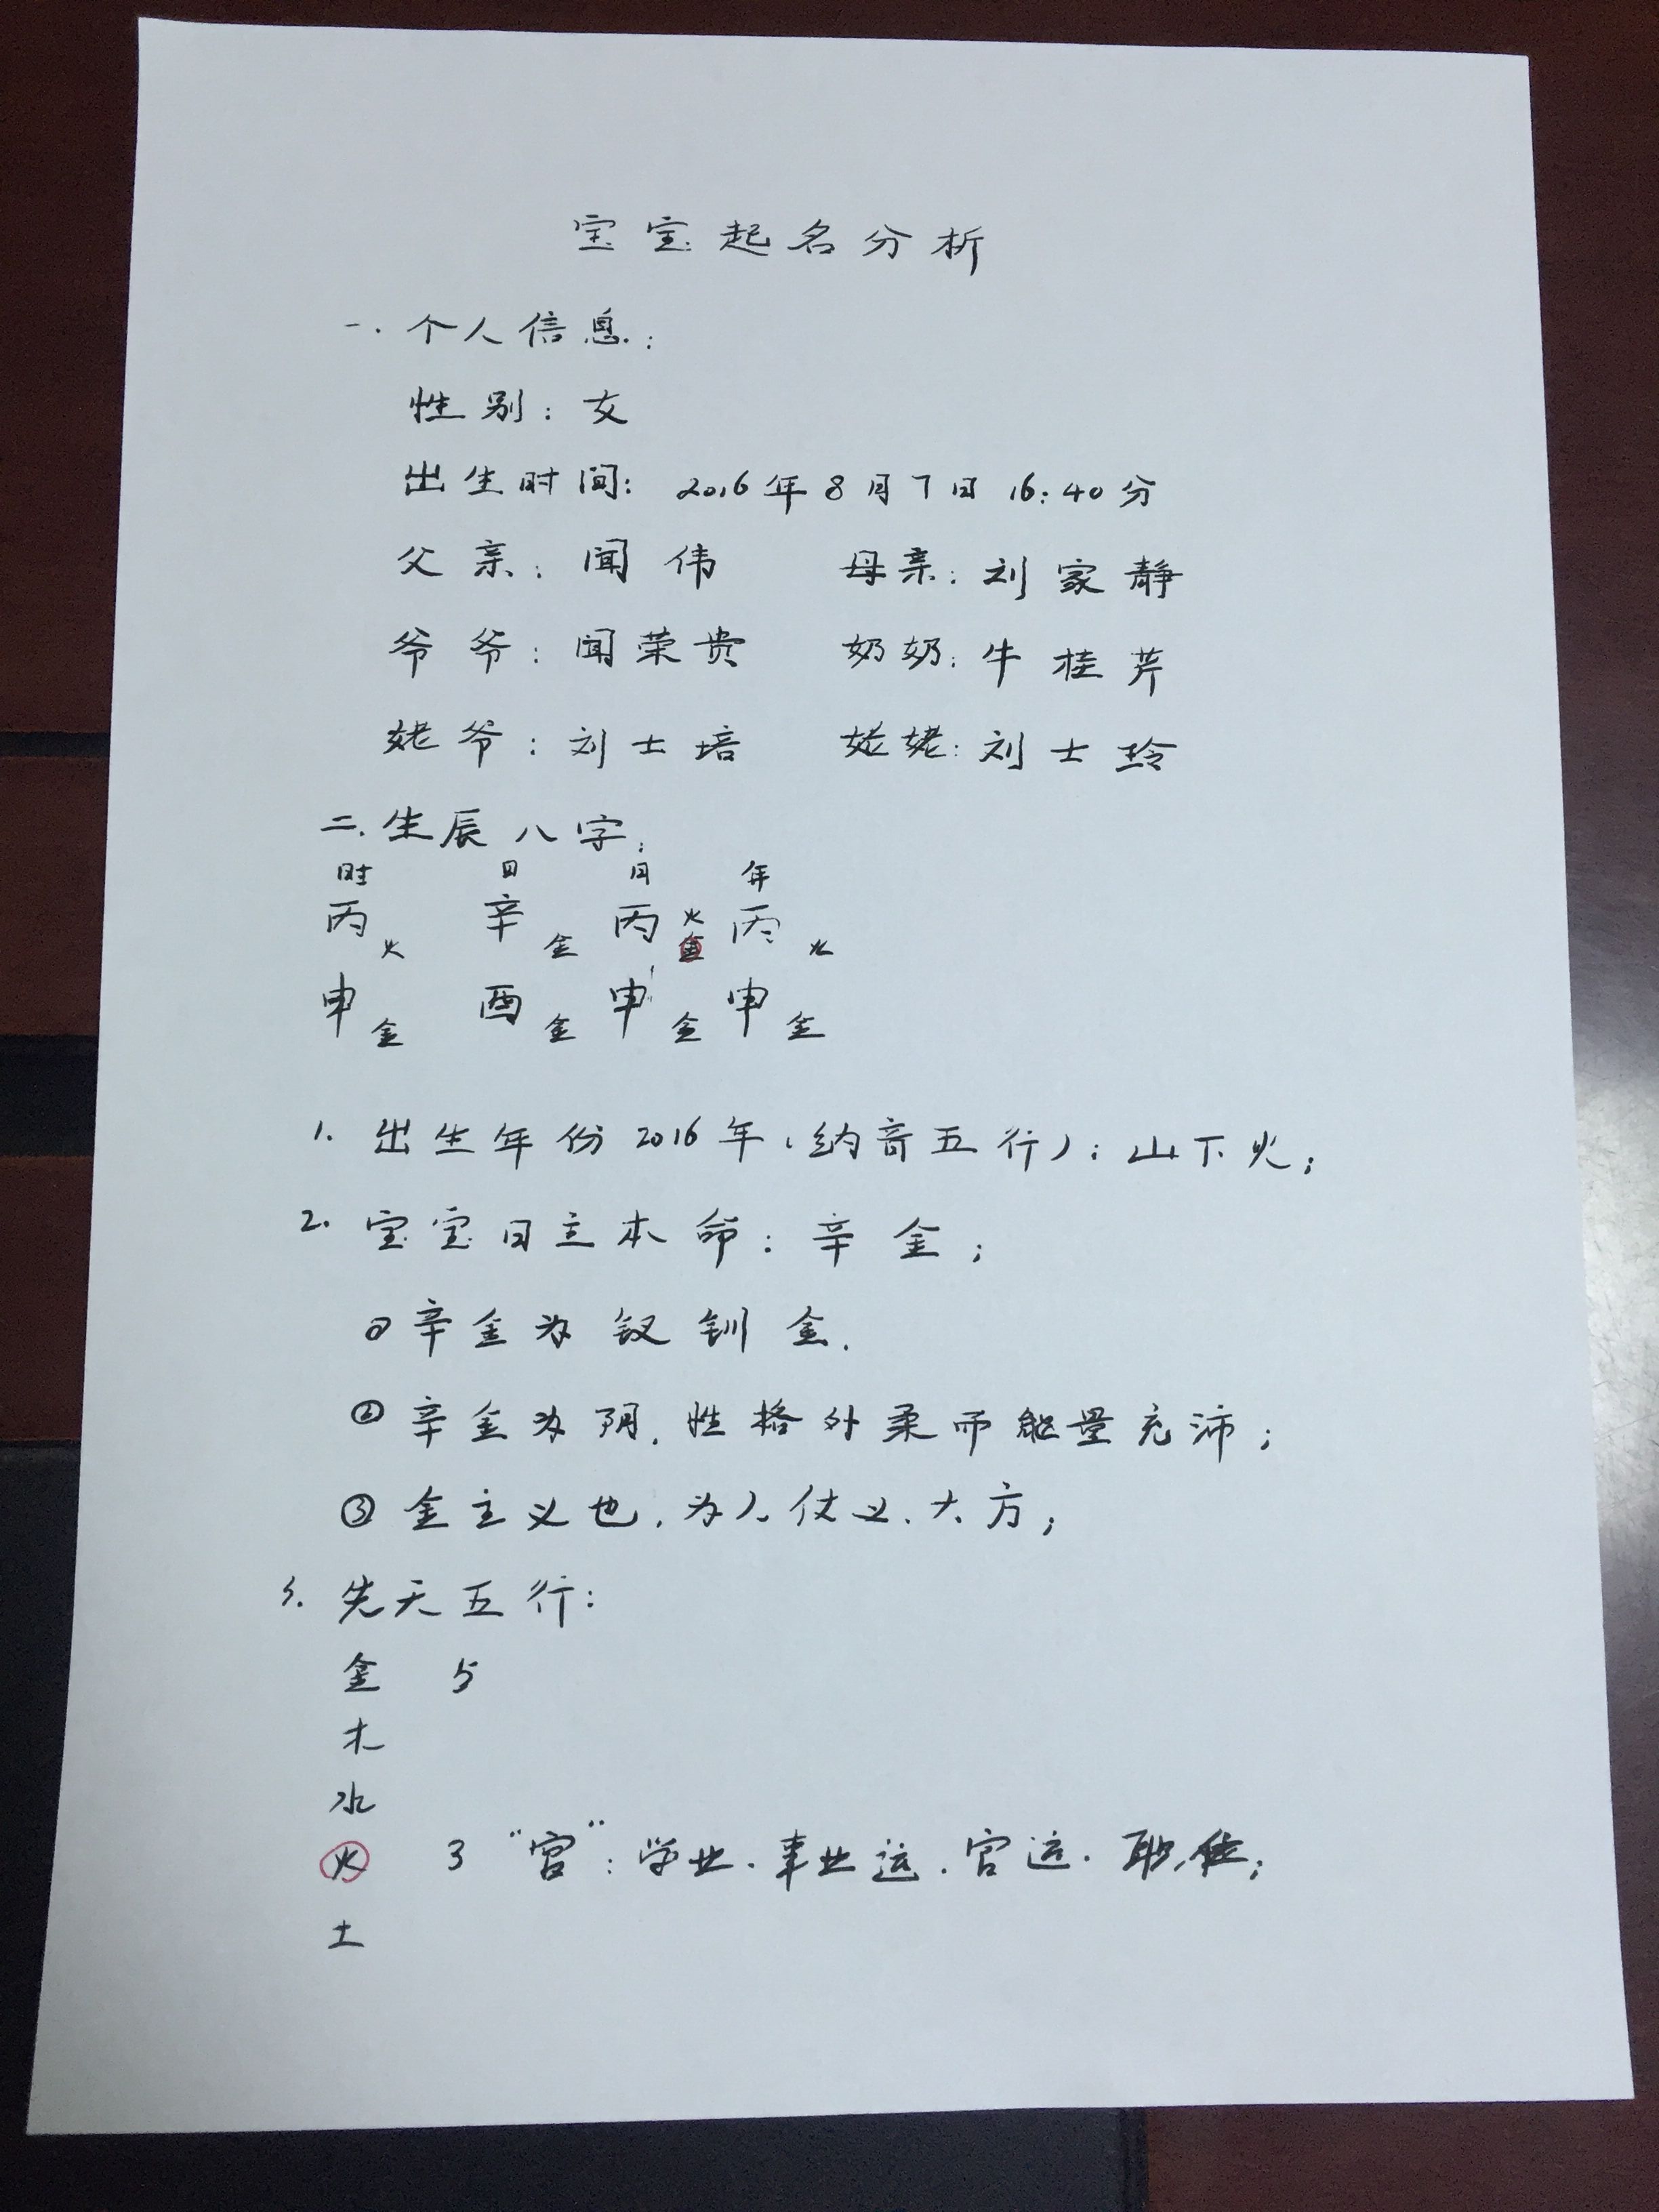 宝宝起名分析
一. 个人信息:
性别: 女
出生时间: 2016年8月7日 16:40分
父亲: 闻伟 母亲: 刘家静
爷爷: 闻荣贵 奶奶: 牛桂芹
姥爷: 刘士培 姥姥: 刘士玲
二. 生辰八字:
时 日 月 年
丙火 辛金 丙火金 丙火
申金 酉金 申金 申金
1. 出生年份2016年(纳音五行): 山下火;
2. 宝宝日主本命: 辛金;
① 辛金为钗钏金.
② 辛金为阴. 性格外柔而能量充沛;
③ 金主义也. 为人仗义. 大方;
3. 先天五行:
金 5
木
水
火 3 "官": 学业. 事业运. 官运. 职位;
土